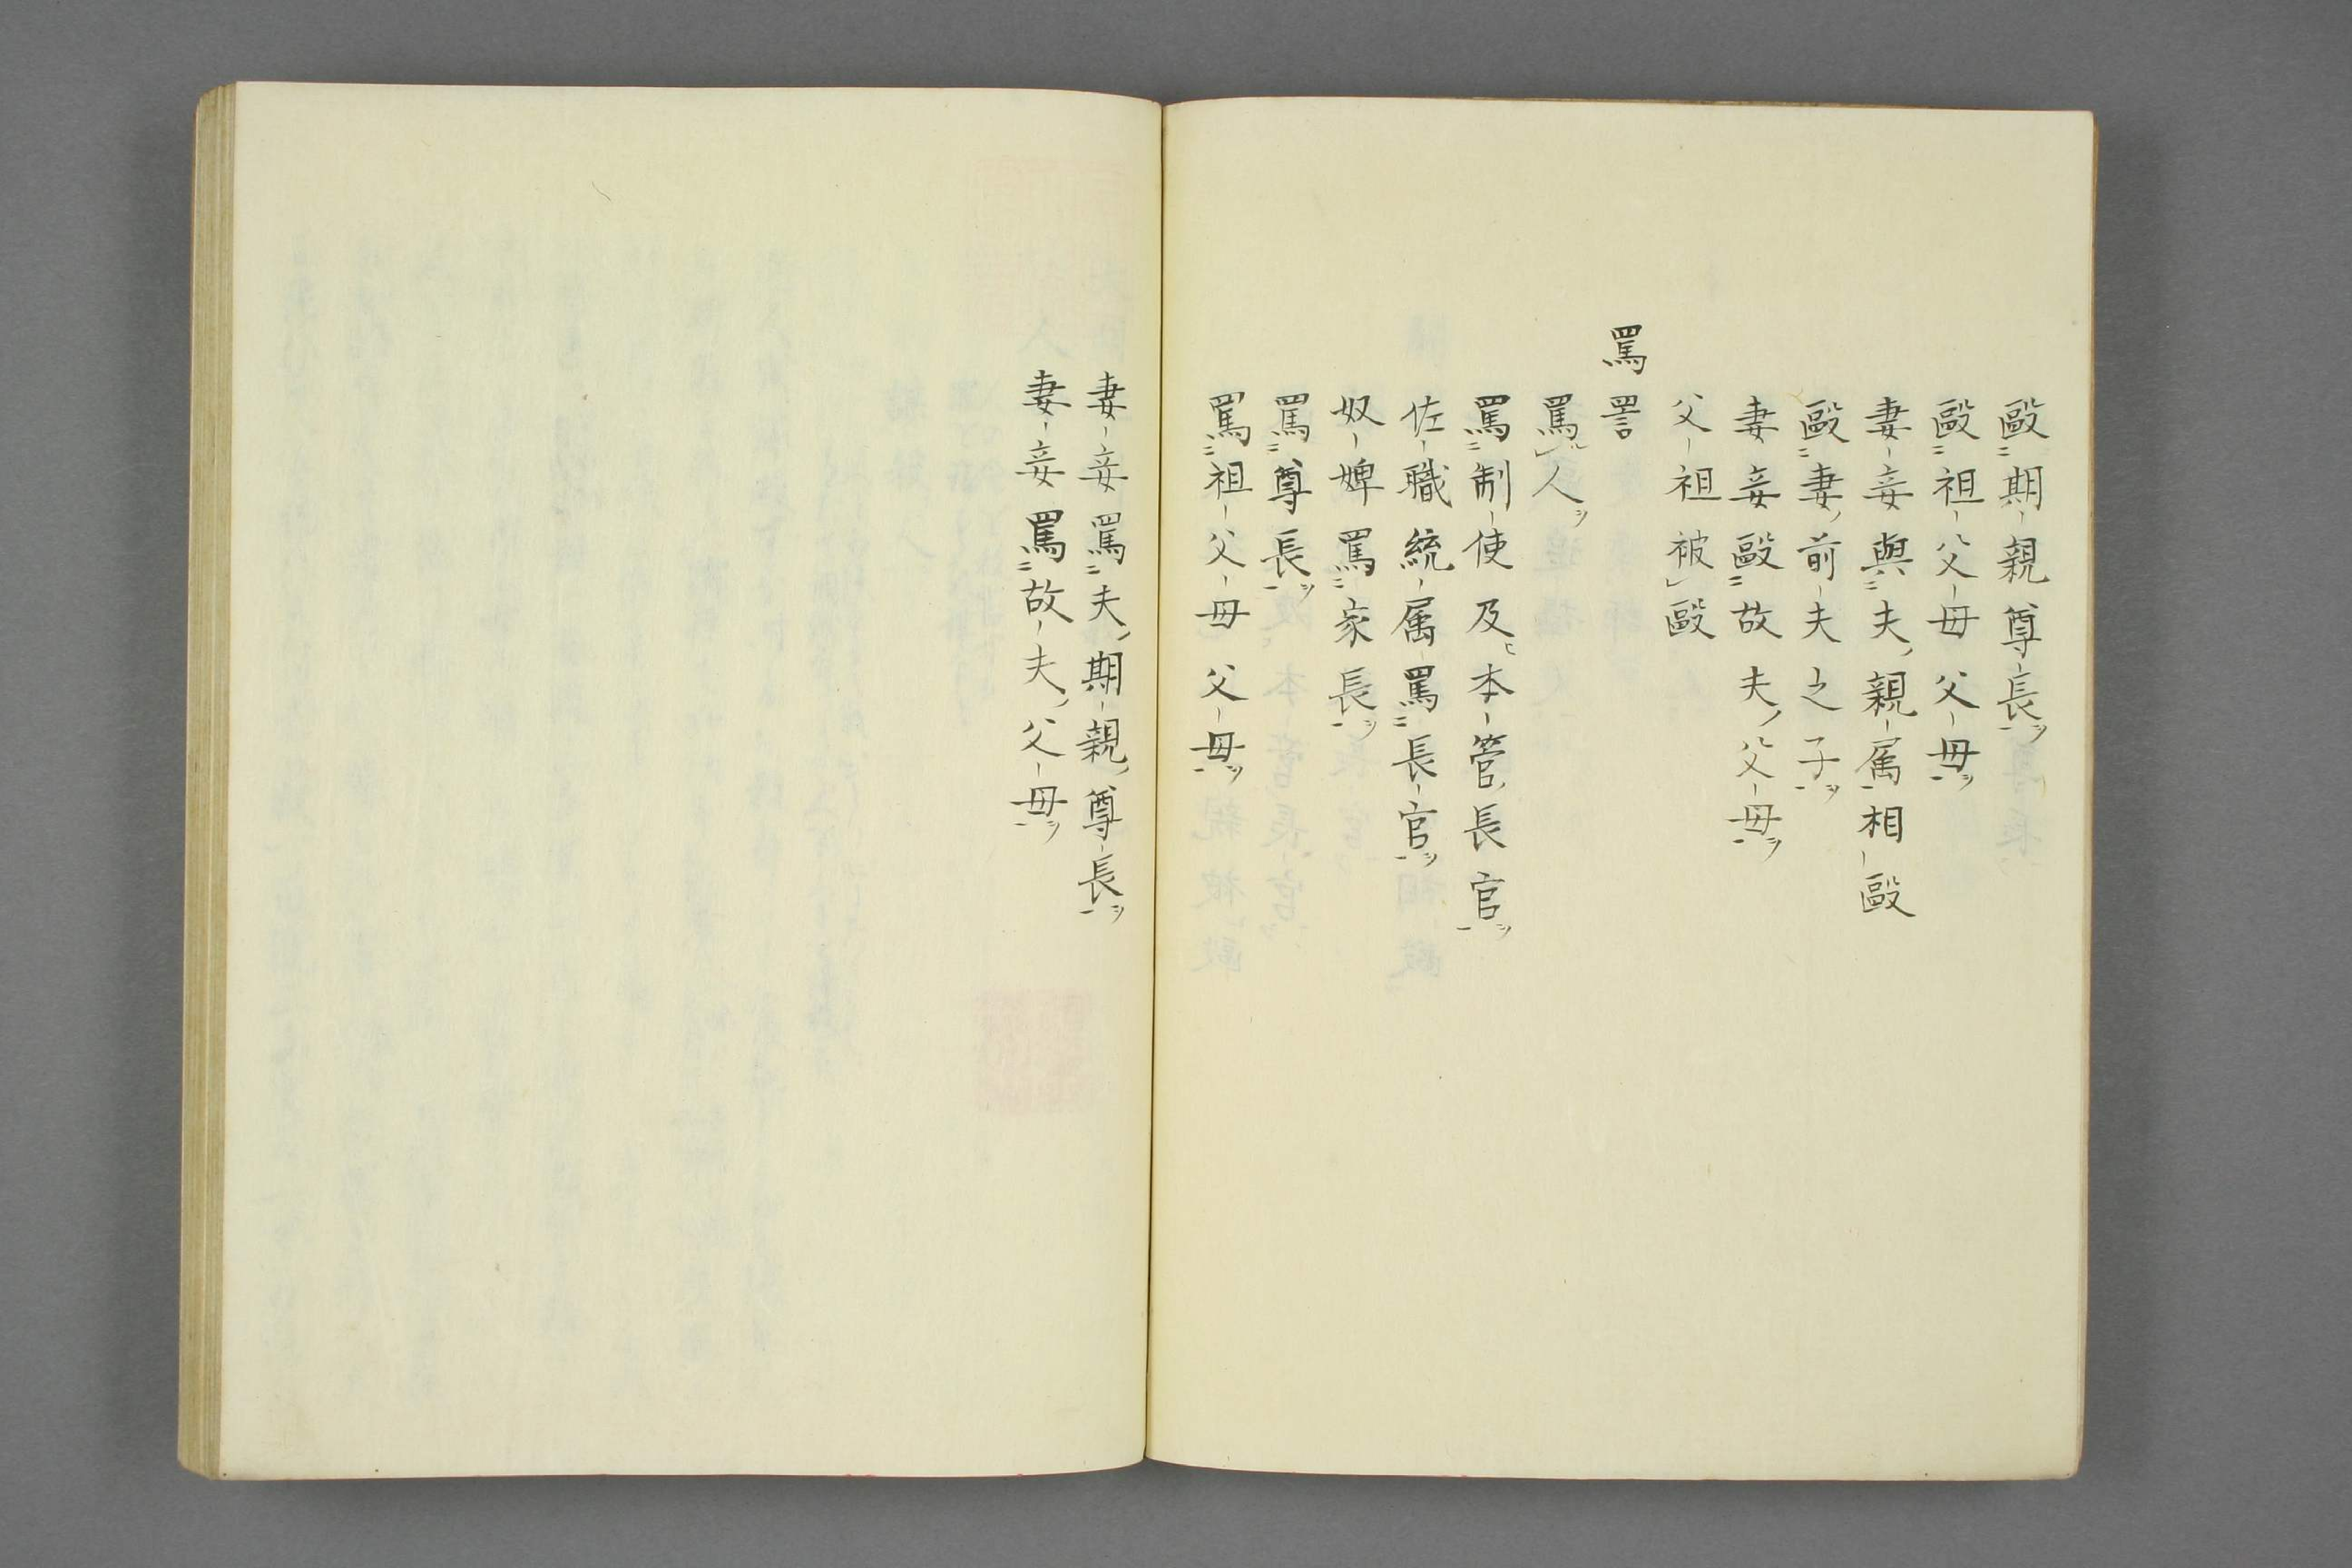 毆期親尊長
毆祖父母父母
妻妾與夫親属相毆
毆妻前夫之子
妻妾毆故夫父母
父祖被毆
罵詈
罵人
罵制使及本管長官
佐職統属罵長官
奴婢罵家長
罵尊長
罵祖父母父母
妻妾罵夫期親尊長
妻妾罵故夫父母